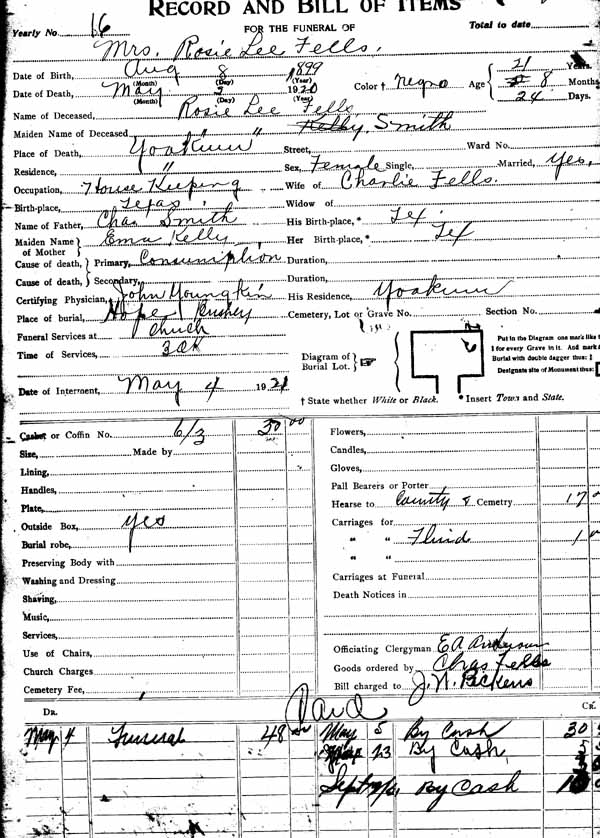 RECORD AND BILL OF ITEMS
Yearly No. 16 FOR THE FUNERAL OF Total to date
Mrs. Rosie Lee Fells.
Date of Birth, Aug 8 1899
(Month) (Day) (Year)
Date of Death, May 2 1920 Color † Negro Age 21 Years. 8 Months 24 Days.
(Month) (Day) (Year)
Name of Deceased, Rosie Lee Fells
Maiden Name of Deceased, " " Kelly Smith
Place of Death, Yoakum Street, Ward No.
Residence, " Sex, Female Single, Married, Yes,
Occupation, House Keeping Wife of Charlie Fells.
Birth-place, Texas, Widow of
Name of Father, Chas Smith His Birth-place, * Tex.
Maiden Name of Mother Ema Kelly, Her Birth-place, * Tex
Cause of death, Primary, Consumption Duration,
Cause of death, Secondary, Duration,
Certifying Physician, John Youngkin His Residence, Yoakum
Place of burial, Hope Cemetery, Lot or Grave No. Section No.
Funeral Services at Chuch
Time of Services,
Diagram of Burial Lot.
Put in the Diagram one mark like t
1 for every Grave in it. And mark
Burial with double dagger thus: ‡
Designate site of Monument thus:
Date of Interment, May 4 1921
† State whether White or Black. * Insert Town and State.
Casket or Coffin No. 6/3 30 00 Flowers,
Size, Made by Candles,
Lining, Gloves,
Handles, Pall Bearers or Porter
Plate, Hearse to County & Cemetry 17
Outside Box, yes Carriages for
Burial robe, " " Fluid 1
Preserving Body with " "
Washing and Dressing Carriages at Funeral
Shaving, Death Notices in
Music,
Services,
Use of Chairs, Officiating Clergyman EA Anderson
Church Charges Goods ordered by Chas Fells
Cemetery Fee, Bill charged to J. N. Pickens
DR. Paid CR.
May 4 Funeral 48 May 5 By Cash 30
23 By Cash, 5
Sept By Cash 10